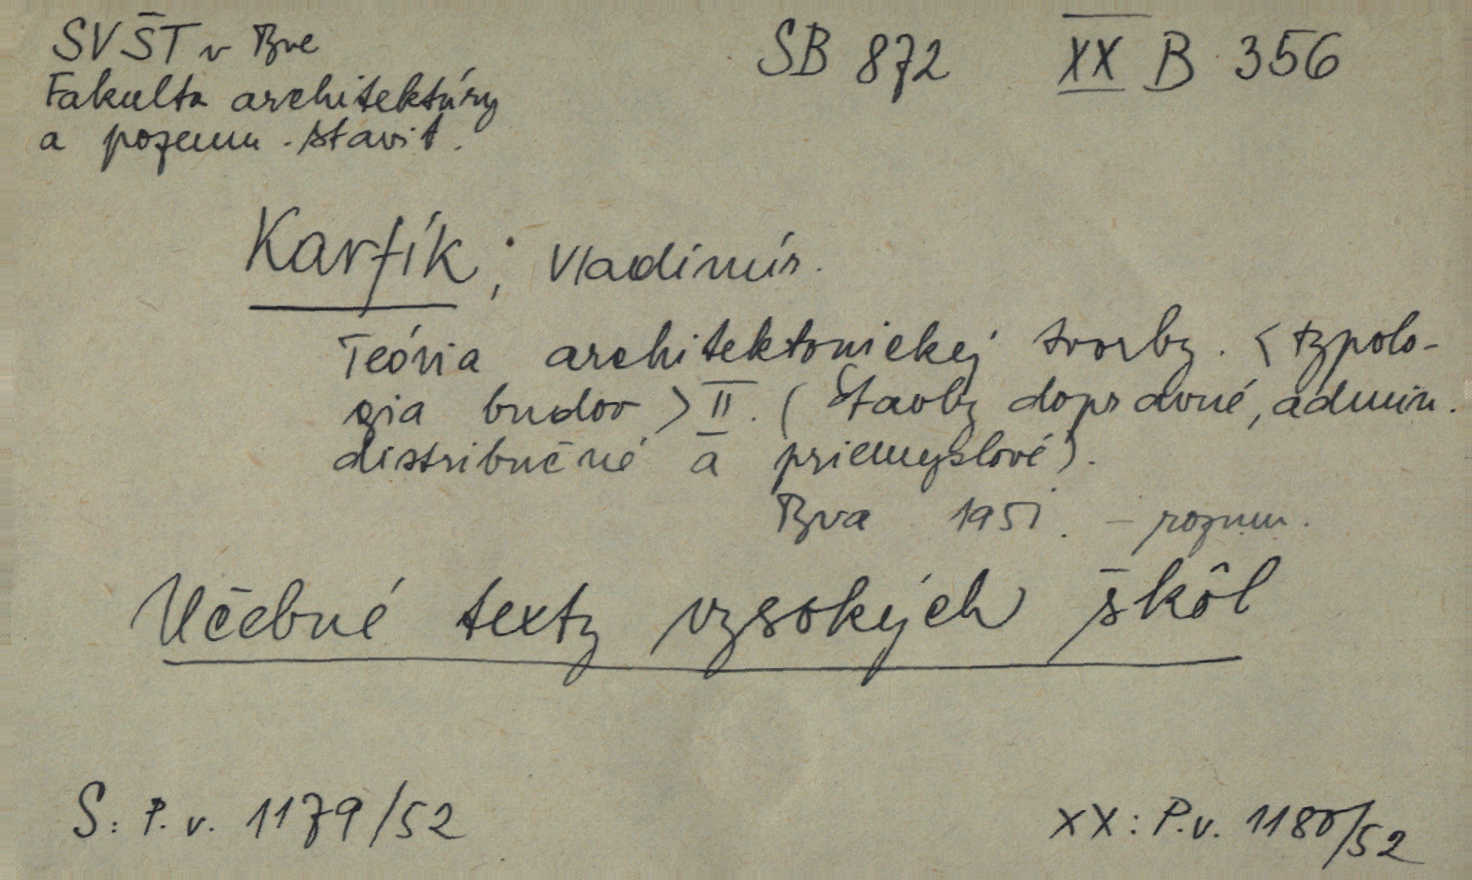 SVŠT v Bve SB 872 XX B 356
Fakulta architektúry
a pozemn. stavit.
Karfík, Vladimír.
Teória architektonickej tvorby. <typolo-
gia budov> II. (Stavby dopravné, admin.
distribučné a priemyslové).
Bva 1951. – rozmn.
Učebné texty vysokých škôl
S: P. v. 1179/52 XX: P.v. 1180/52